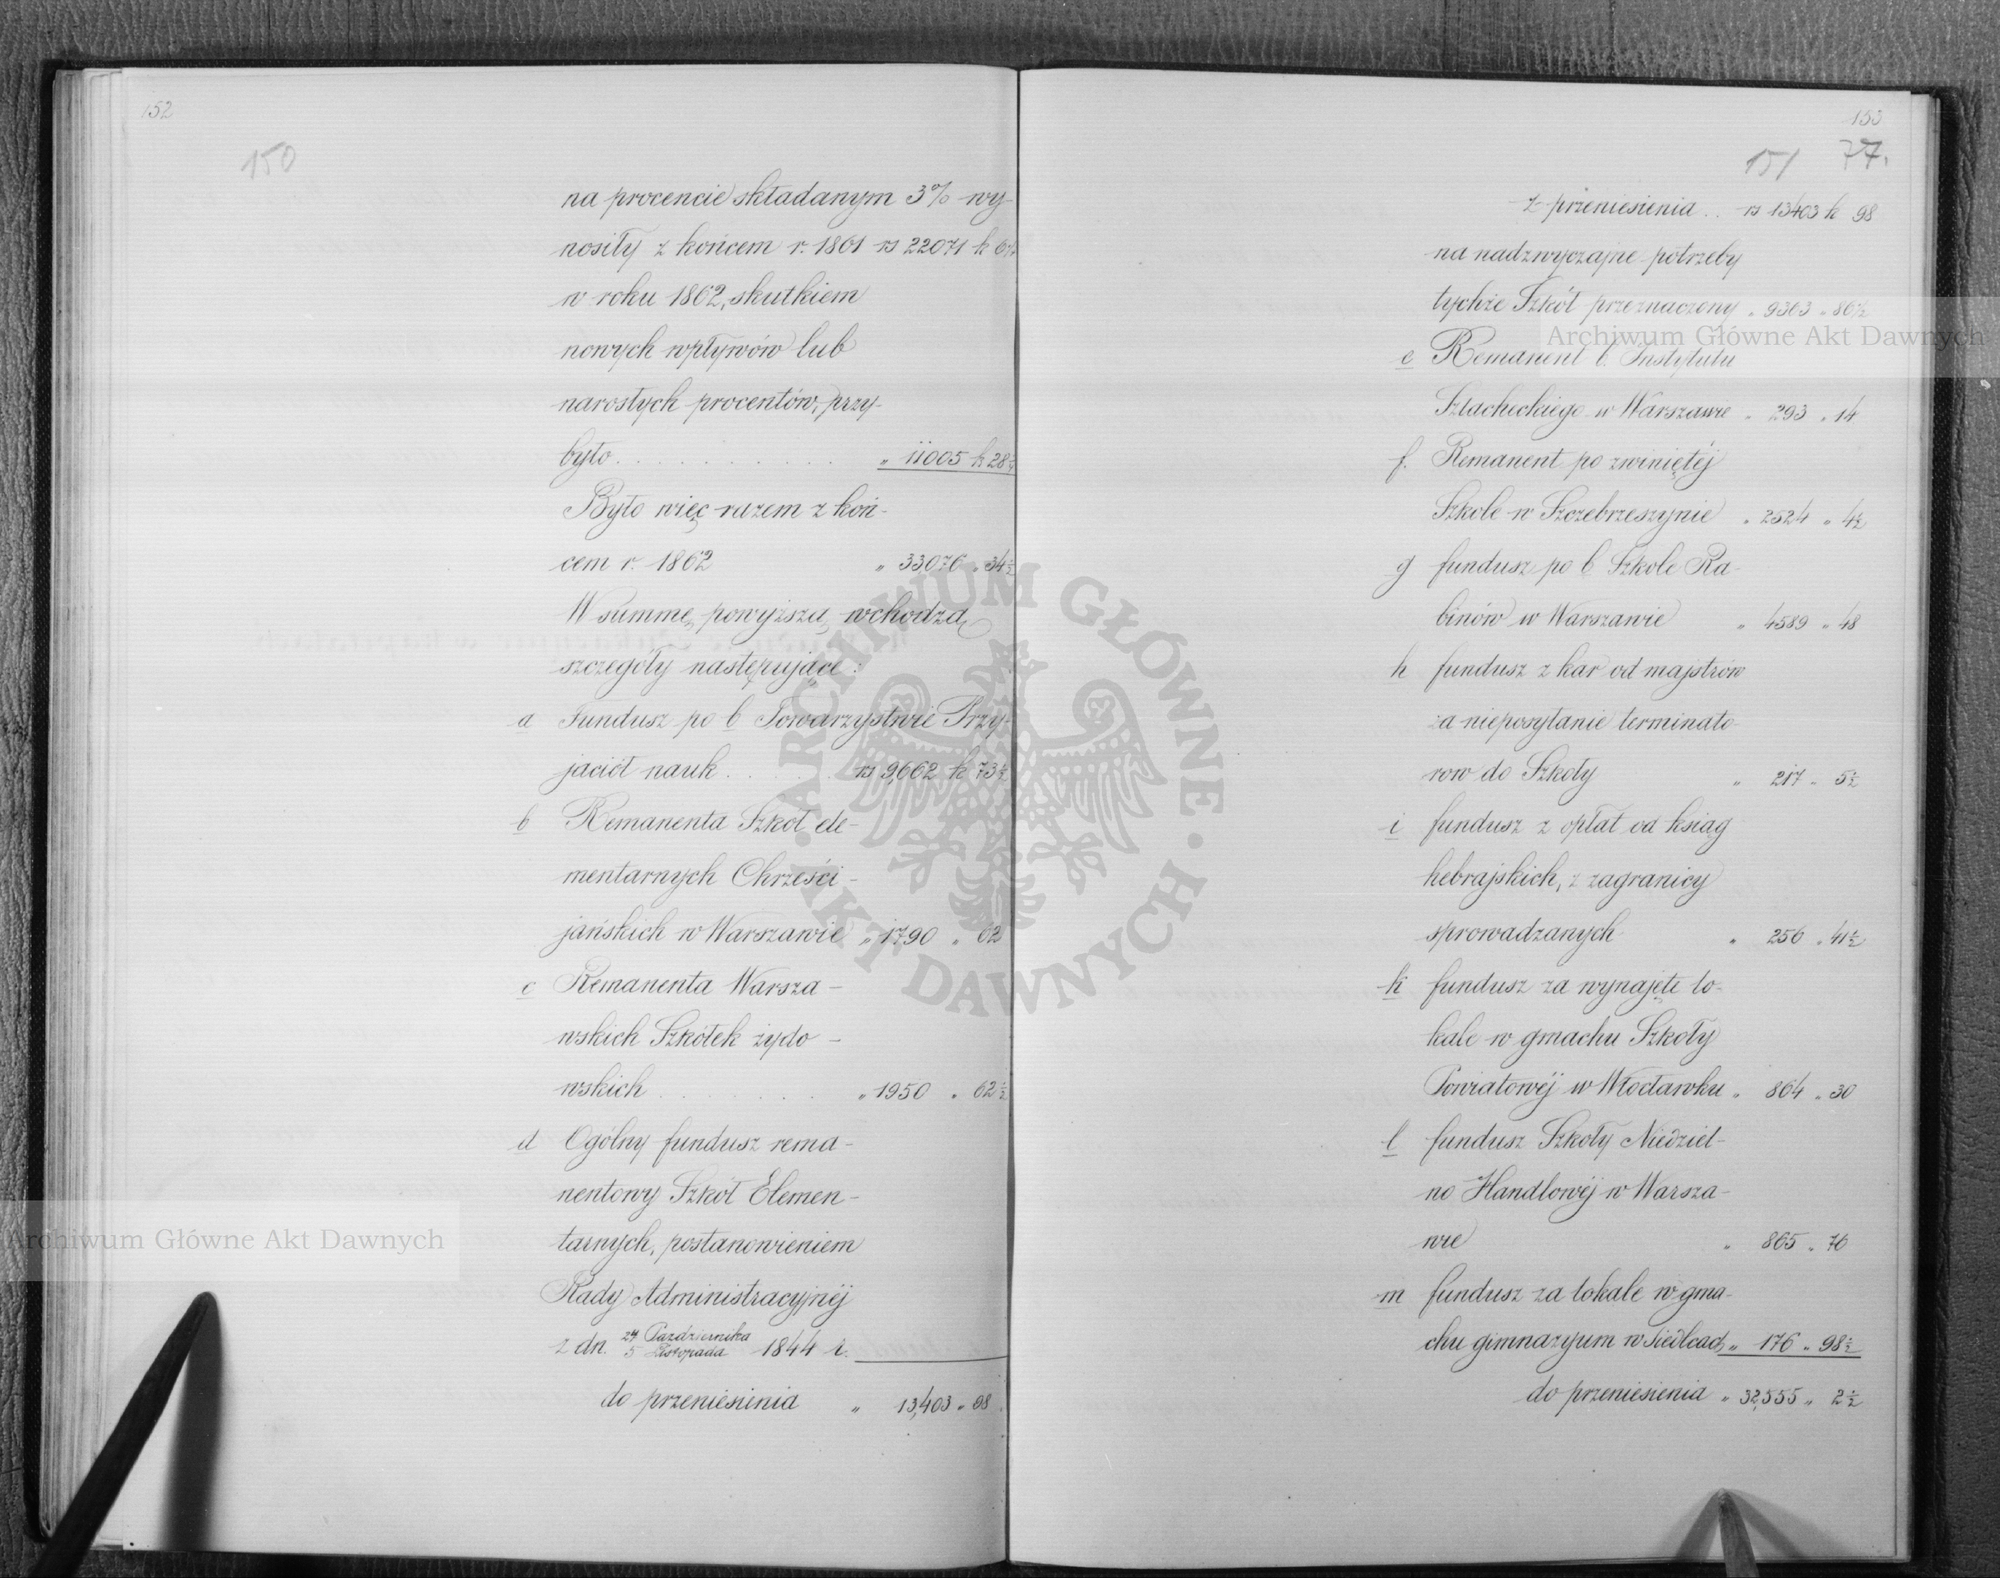 152
150
na procencie składanym 3% wy-
nosiły z końcem r. 1861 rs 22071 k 6½
w roku 1862, skutkiem
nowych wpływów lub
narosłych procentów, przy-
było . . . . . . . . . . . „ 11005 k 28½
Było więc razem z koń-
cem r. 1862 „ 33,076 „ 34½
W summę powyższą wchodzą
szczegóły następujące:
a Fundusz po b Towarzystwie Przy-
jaciół nauk . . . . . rs 9,662 k 73½
b Remanenta Szkół ele-
mentarnych Chrześci-
jańskich w Warszawie „ 1790 „ 62
c Remanenta Warsza-
wskich Szkółek żydo-
wskich . . . . . . . . „ 1950 „ 62½
d Ogólny fundusz rema-
nentowy Szkół Elemen-
tarnych, postanowieniem
Rady Administracyjnéj
z dn. 24 Października
5 Listopada 1844 r.
do przeniesienia „ 13,403 „ 98
153
151 77.
z przeniesienia . . rs 13403 k 98
na nadzwyczajne potrzeby
tychże Szkół przeznaczony „ 9363 „ 86½
e Remanent b. Instytutu
Szlacheckiego w Warszawie „ 293 „ 14
f. Remanent po zwiniętéj
Szkole w Szczebrzeszynie „ 2524 „ 4½
g fundusz po b Szkole Ra-
binów w Warszawie „ 4589 „ 48
h fundusz z kar od majstrów
za nieposyłanie terminato-
row do Szkoły „ 217 „ 5½
i fundusz z opłat od ksiąg
hebrajskich, z zagranicy
sprowadzanych „ 256 „ 41½
k fundusz za wynajęte lo-
kale w gmachu Szkoły
Powiatowéj w Włocławku „ 864 „ 30
l fundusz Szkoły Niedziel-
no Handlowéj w Warsza-
wie „ 865 „ 76
m fundusz za lokale w gma-
chu gimnazyum w Siedlcach „ 176 „ 98½
do przeniesienia „ 32,555 „ 2½
Archiwum Główne Akt Dawnych
Archiwum Główne Akt Dawnych
ARCHIWUM GŁÓWNE · AKT DAWNYCH ·